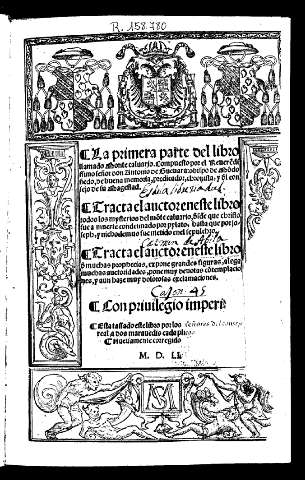 R. 158.780
¶La primera parte del libro
llamado Monte caluario. Compuesto por el Reuerēdis
simo señor don Antonio de Gueuara obispo de Mōdo
ñedo, de buena memoria, predicador, y chronista, y del con
sejo de su Magestad.
¶Tracta el auctor en este libro
todos los mysterios del mōte caluario, desde que christo
fue a muerte condennado por pylato, hasta que por jo
seph, y nichodemus fue metido en el sepulchro.
¶Tracta el auctor en este libro
muchas prophecias, expone grandes figuras, alega
muchas auctoridades, pone muy deuotas contemplacio
nes, y aun haze muy dolorosas exclamaciones.
Cajon 45
¶Con priuilegio imperi
¶Esta tassado este libro por los señores del consejo
real, a dos marauedis cada pliego
¶Nueuamente corregido
M. D. LI